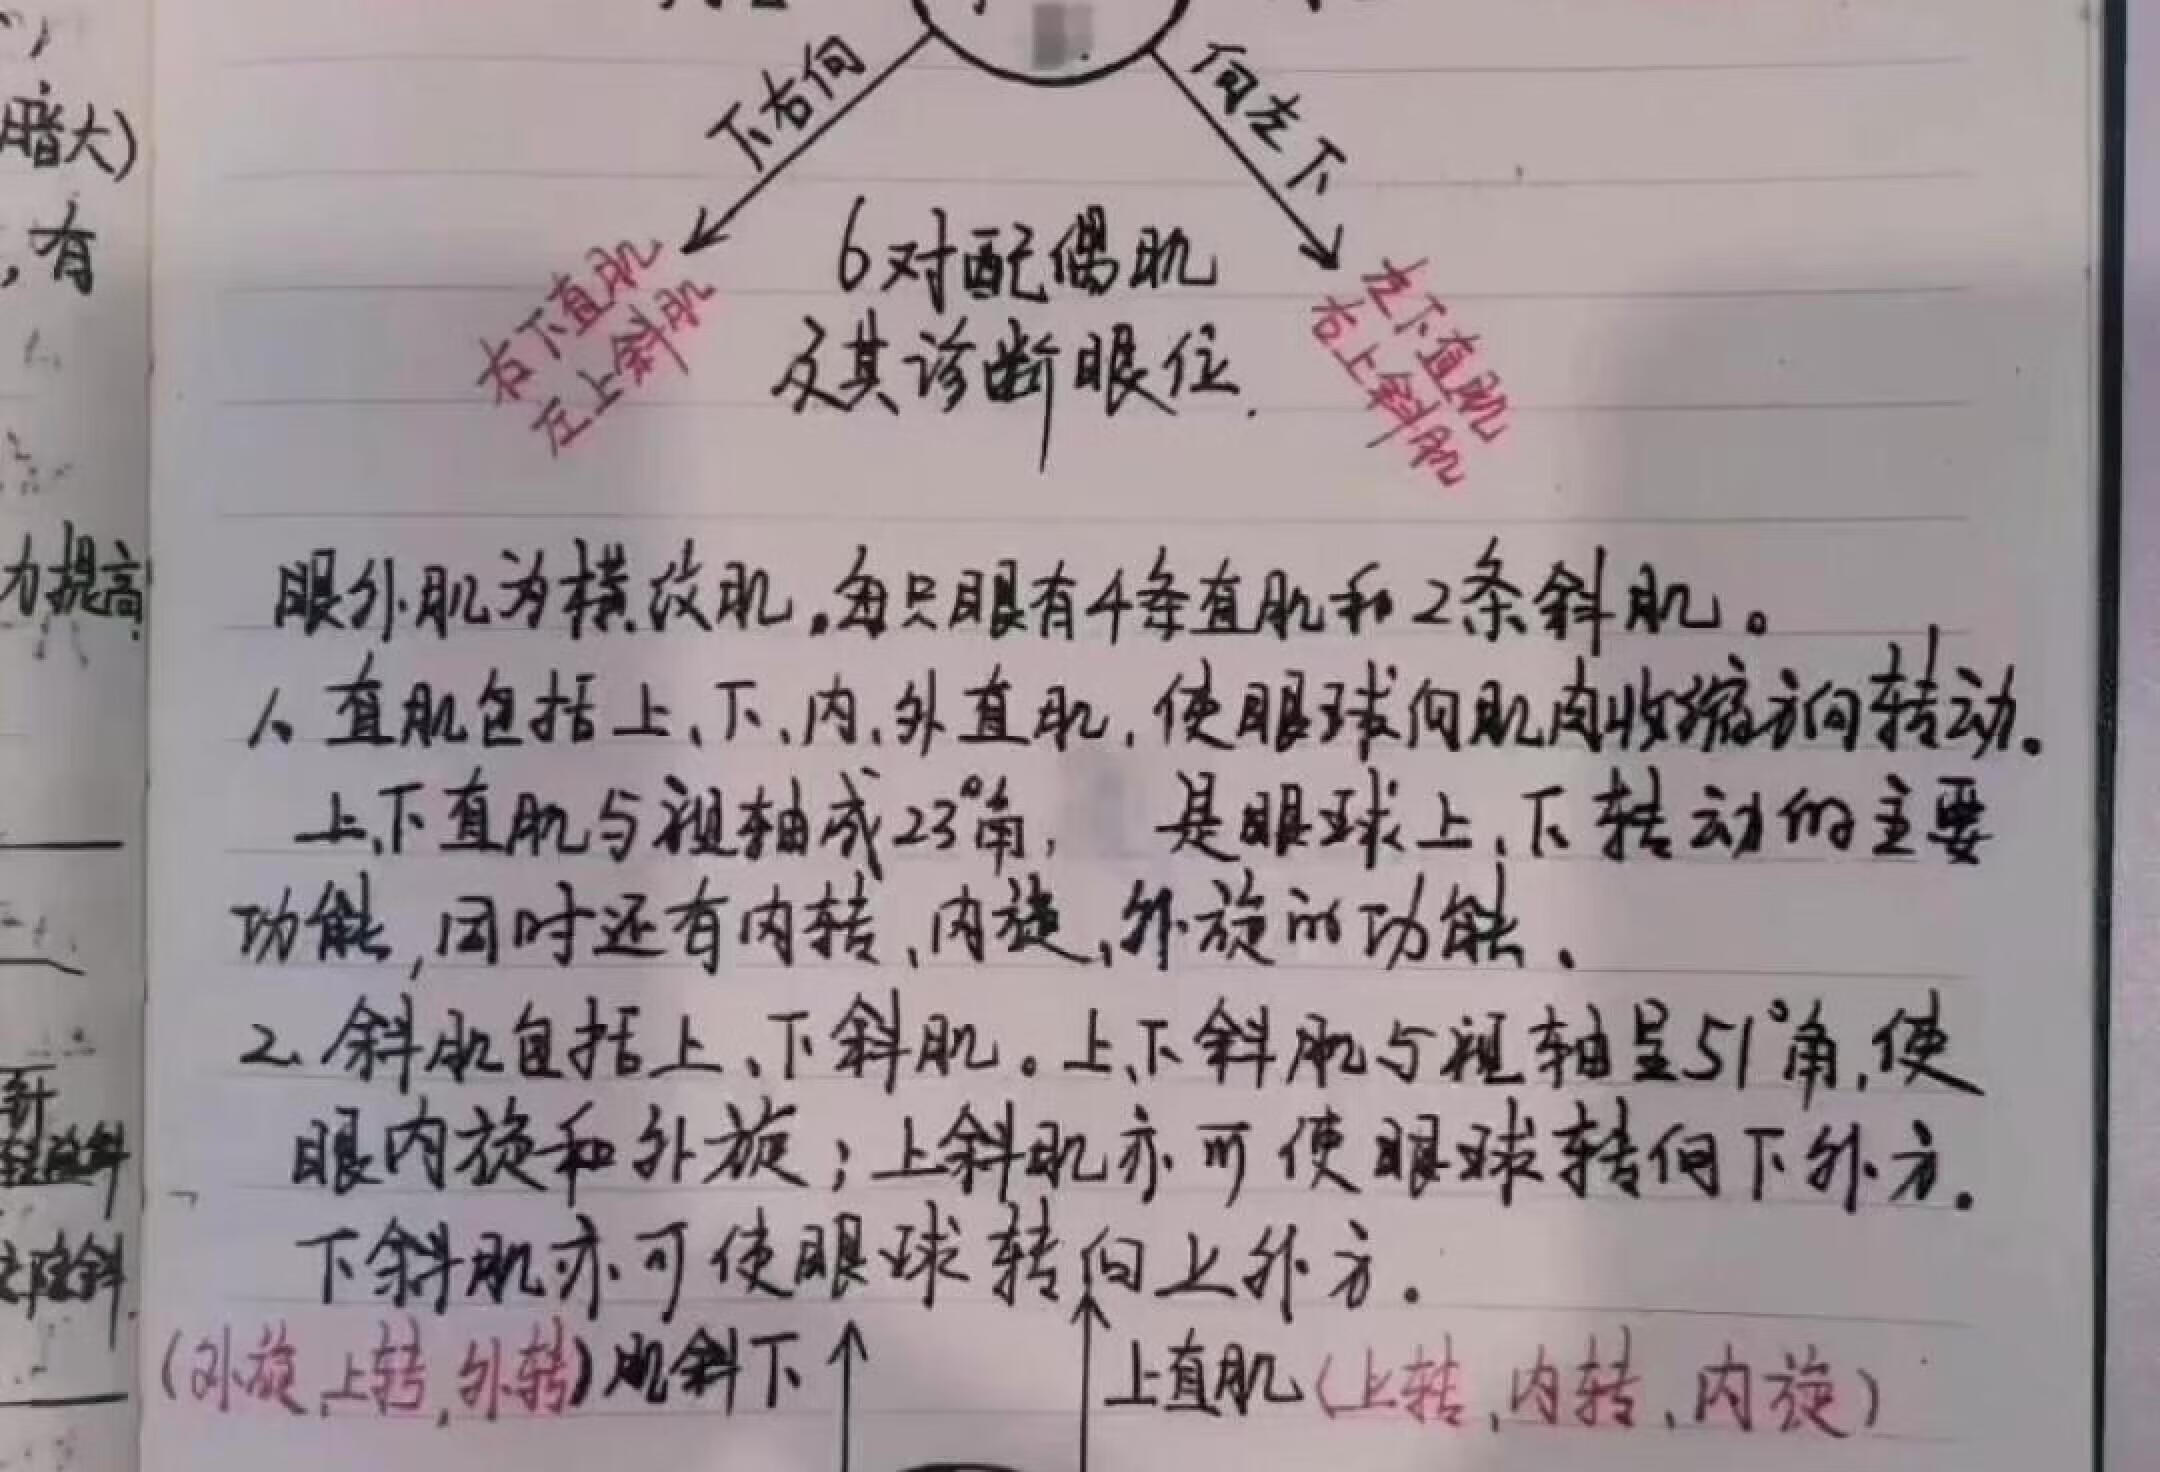 暗大)
,有
力提高
下右向
向左下
右下直肌
左上斜肌
左下直肌
右上斜肌
6对配偶肌
及其诊断眼位.
眼外肌为横纹肌,每只眼有4条直肌和2条斜肌。
1、直肌包括上、下、内、外直肌,使眼球向肌肉收缩方向转动。
上、下直肌与视轴成23°角, 是眼球上、下转动的主要
功能,同时还有内转、内旋、外旋的功能、
2、斜肌包括上、下斜肌。上、下斜肌与视轴呈51°角,使
眼内旋和外旋;上斜肌亦可使眼球转向下外方。
下斜肌亦可使眼球转向上外方。
(外旋,上转,外转)肌斜下
上直肌(上转、内转、内旋)